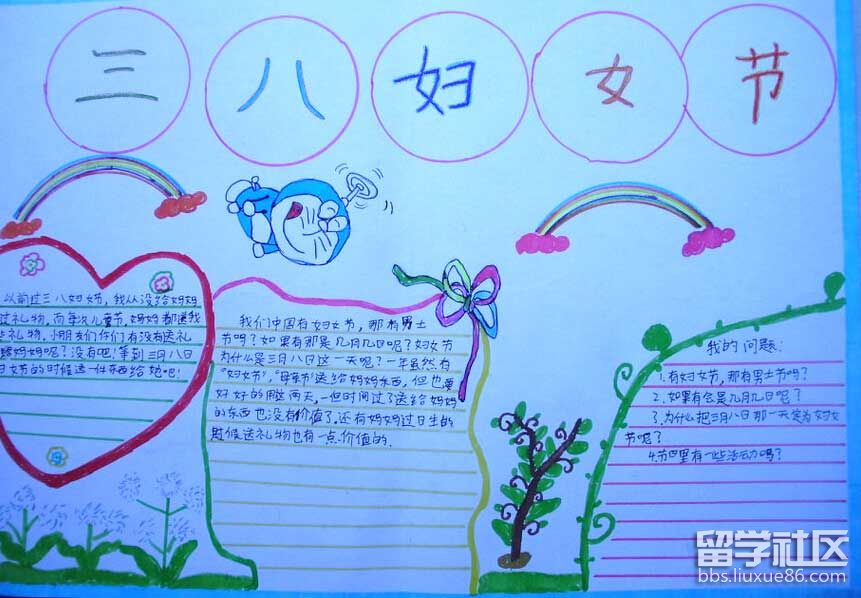 三八妇女节
以前过三八妇女节，我从没给妈妈
过礼物，而每次儿童节，妈妈都送我
礼物，小朋友们你们有没有送礼
妈妈呢？没有吧！等到三月八日
妇女节的时候送一件东西给她吧！
我们中国有妇女节，那有男士
节吗？如果有那是几月几日呢？妇女节
为什么是三月八日这一天呢？一年虽然有
“妇女节”，“母亲节”送给妈妈东西，但也要
好好的用这两天，一但时间过了送给妈妈
的东西也没有价值了，还有妈妈过日生的
时候送礼物也有一点价值的。
我的问题：
1.有妇女节，那有男士节吗？
2.如果有会是几月几日呢？
3.为什么把三月八日那一天定为妇女
节呢？
4.节日里有一些活动吗？
留学社区
bbs.liuxue86.com